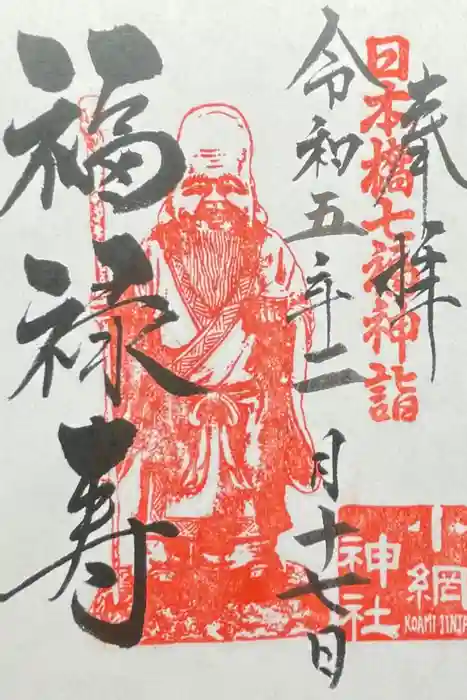 奉拝
日本橋七福神詣
令和五年二月十七日
福禄寿
小網神社
KOAMI JINJA